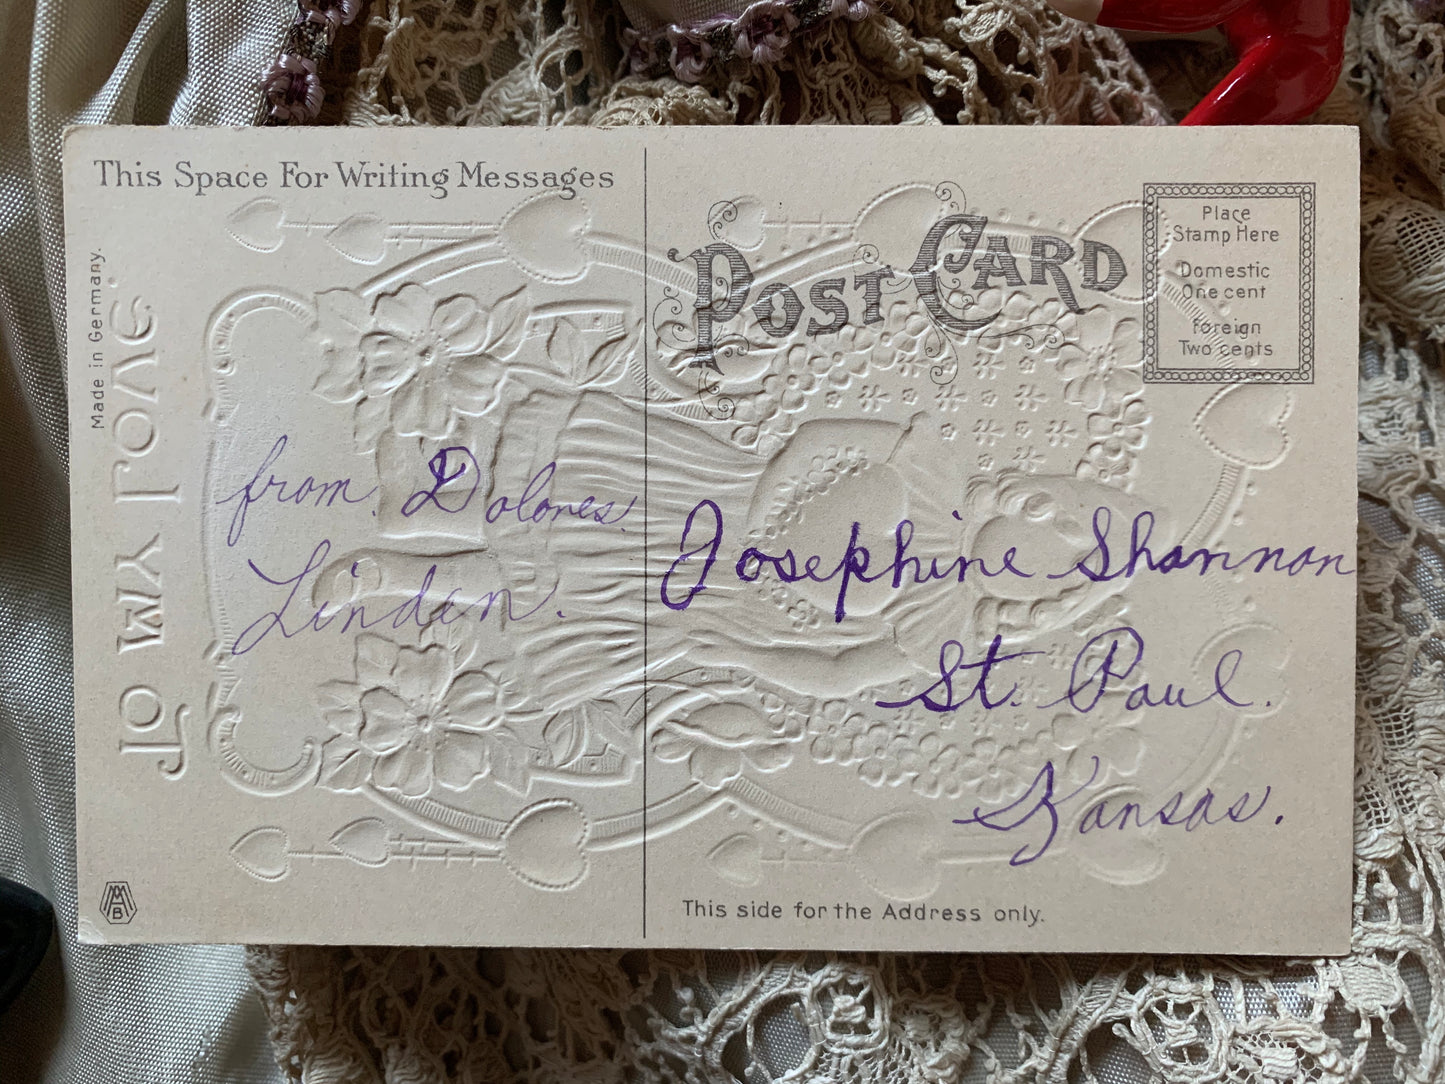 This Space For Writing Messages
Made in Germany.
TO MY LOVE
from. Dolores.
Linden.
M
A
B
POST CARD
Place
Stamp Here
Domestic
One cent
Foreign
Two cents
Josephine Shannon
St. Paul.
Kansas.
This side for the Address only.